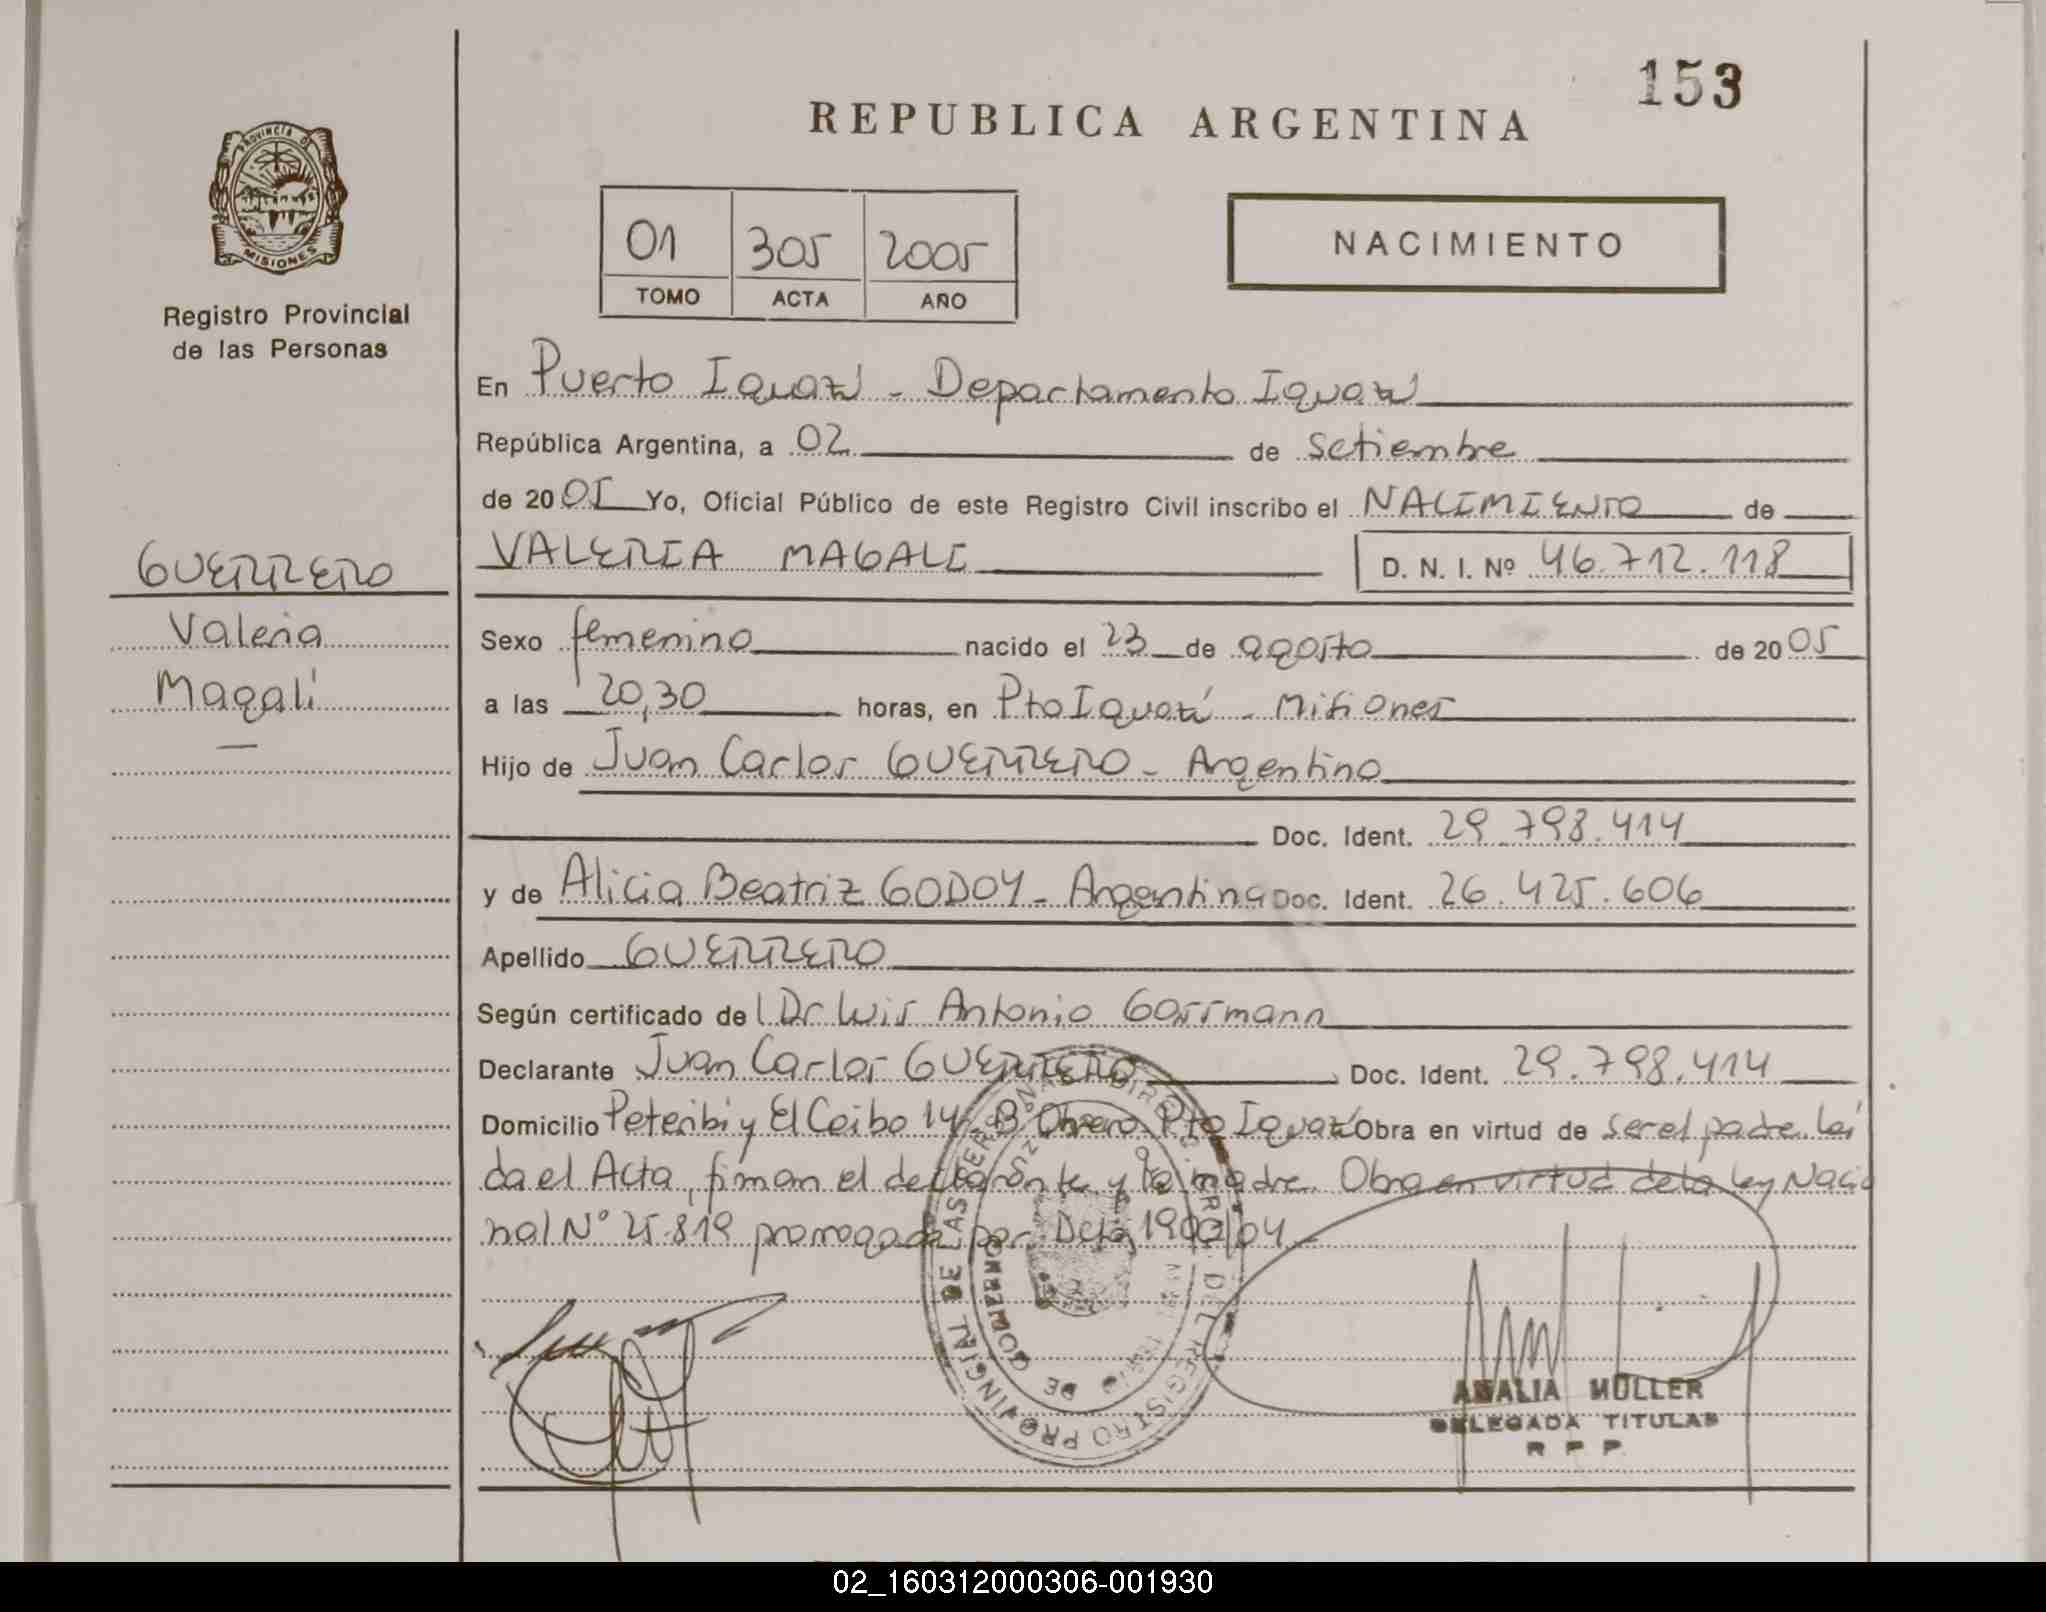 153
REPUBLICA ARGENTINA
PROVINCIA DE
MISIONES
Registro Provincial
de las Personas
01 305 2005
TOMO ACTA AÑO
NACIMIENTO
En Puerto Iguazú - Departamento Iguazú
República Argentina, a 02 de Setiembre
de 2005 Yo, Oficial Público de este Registro Civil inscribo el NACIMIENTO de
GUERRERO
Valeria
Magali
VALERIA MAGALI D. N. I. Nº 46.712.118
Sexo femenino nacido el 23 de agosto de 2005
a las 20,30 horas, en Pto Iguazú - Misiones
Hijo de Juan Carlos GUERRERO - Argentino
Doc. Ident. 29.798.414
y de Alicia Beatriz GODOY - Argentina Doc. Ident. 26.425.606
Apellido GUERRERO
Según certificado del Dr Luis Antonio
Declarante Juan Carlos GUERRERO Doc. Ident. 29.798.414
Domicilio Peteribi y El Ceibo 14 Bº Obrero Pto Iguazú Obra en virtud de ser el padre. Leí
da el Acta, firman el declarante y la madre. Obra en virtud de la ley Nacio
nal Nº 25.819 prorrogada por Dcto 1900/04
DIREC. GRAL. DEL REGISTRO PROVINCIAL DE LAS PERSONAS
DE GOBIERNO
ANALIA MULLER
DELEGADA TITULAR
R P P
02_160312000306-001930